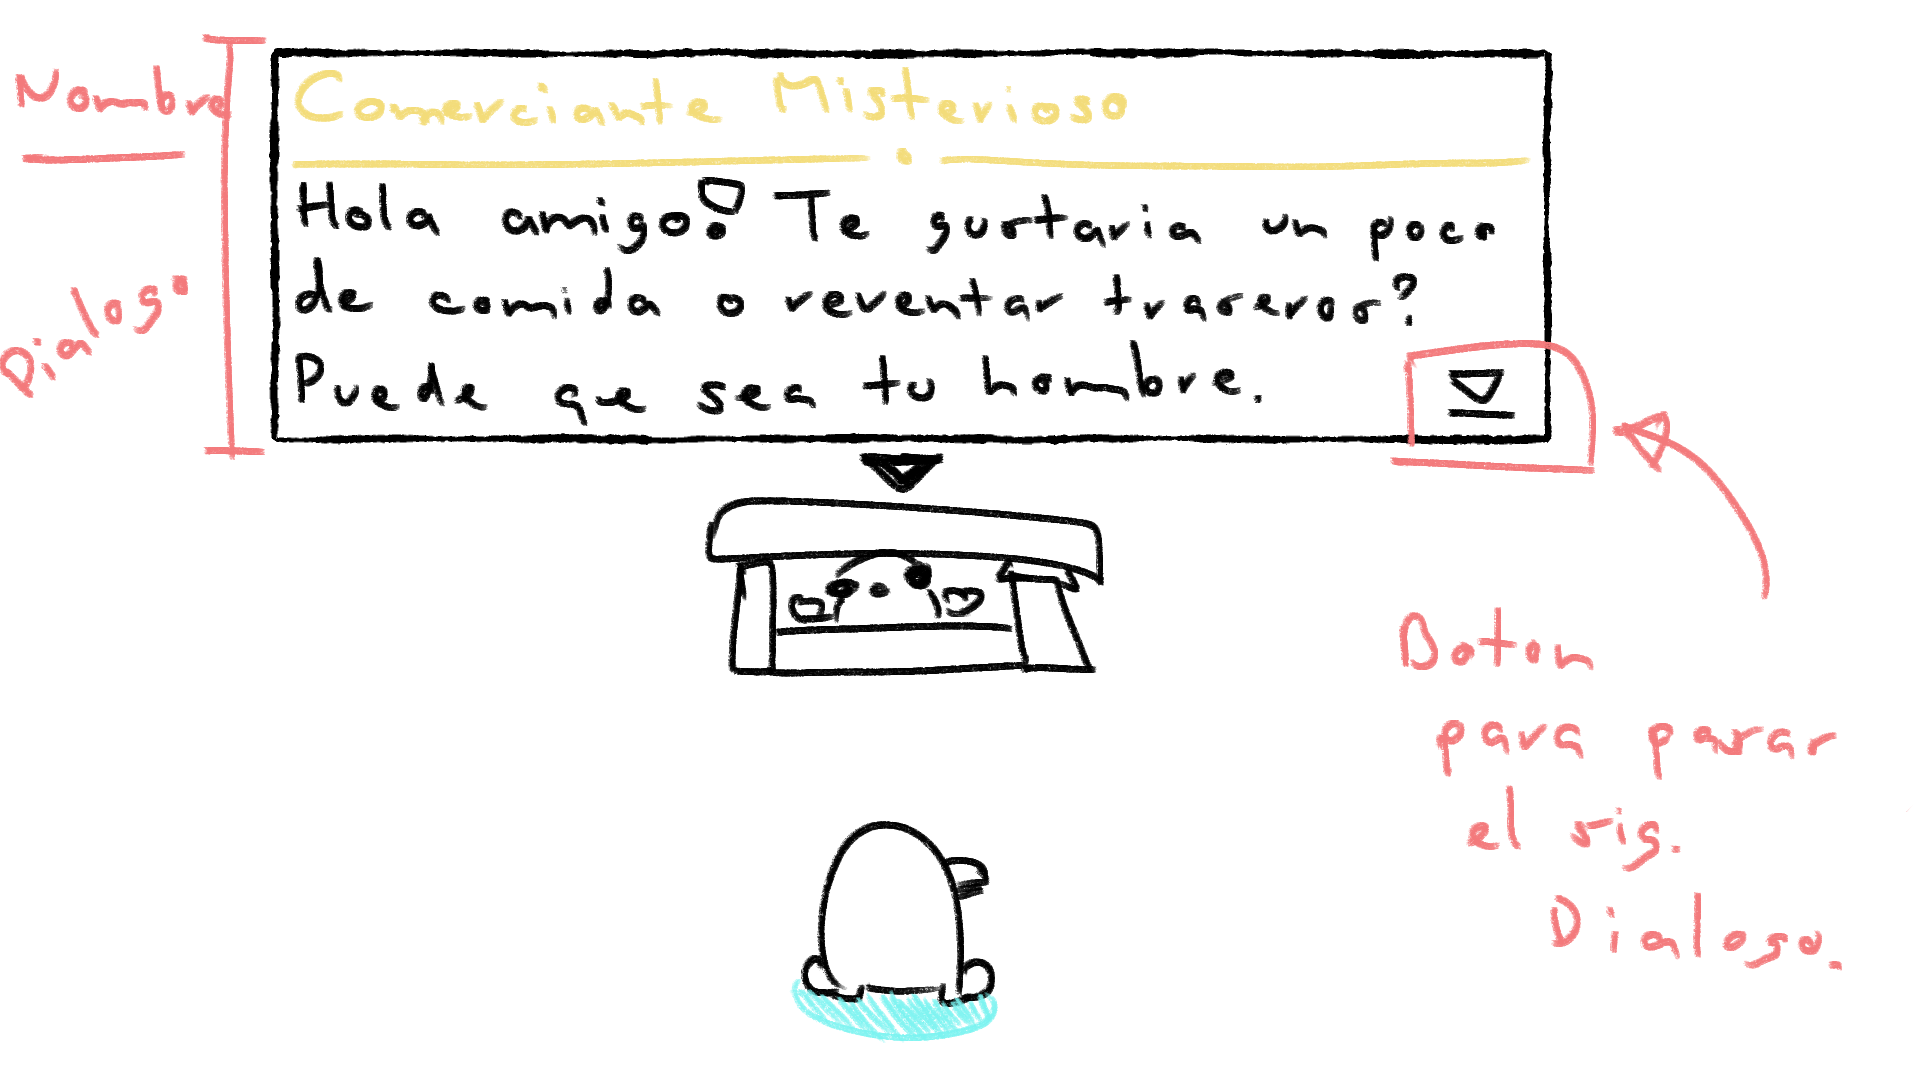 Nombre
Dialogo
Comerciante Misterioso
Hola amigo! Te gustaria un poco
de comida o reventar traseros?
Puede que sea tu hombre.
Boton
para pasar
el sig.
Dialogo.